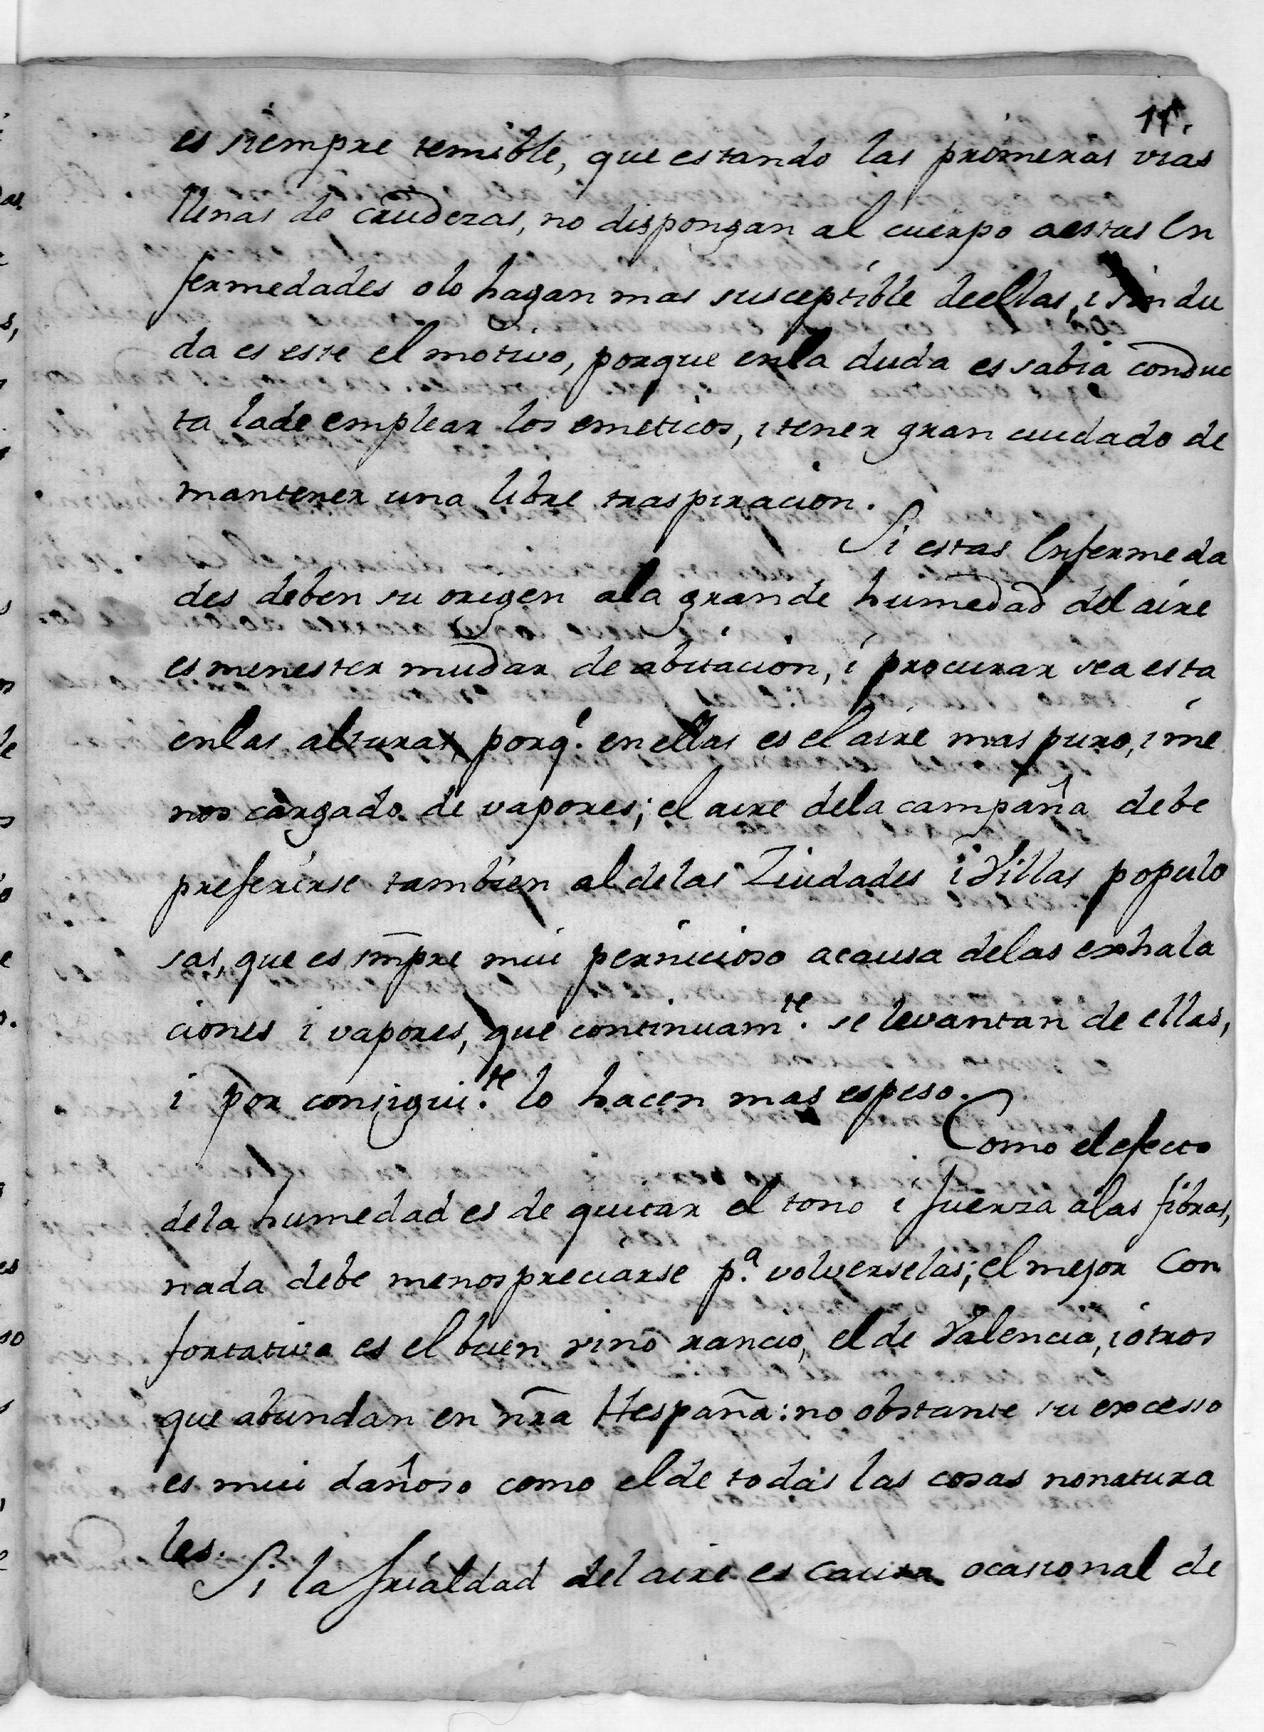 11.
es siempre temible, que estando las primeras vias
llenas de crudezas, no dispongan al cuerpo aestas En
fermedades olo hagan mas susceptible deellas, i sin du
da es este el motivo, porque enla duda es sabia conduc
ta lade emplear los emeticos, i tener gran cuidado de
mantener una libre traspiracion.
Si estas Enfermeda
des deben su origen ala grande humedad del aire
es menester mudar de abitacion, i procurar sea esta
enlas alturas porq.e enellas es el aire mas puro, i me
nos cargado de vapores; el aire dela campaña debe
preferirse tambien al delas Ziudades i Villas populo
sas, que es smpre mui pernicioso acausa delas exhala
ciones i vapores, que continuam.te se levantan de ellas,
i por consigui.te lo hacen mas espeso.
Como el efecto
dela humedad es de quitar el tono i fuerza alas fibras,
nada debe menospreciarse p.a volverselas; el mejor Con
fortativo es el buen vino rancio, el de Valencia, i otros
que abundan en nra Hespaña: no obstante su excesso
es mui dañoso como elde todas las cosas nonatura
les.
Si la frialdad del aire es causa ocasional de